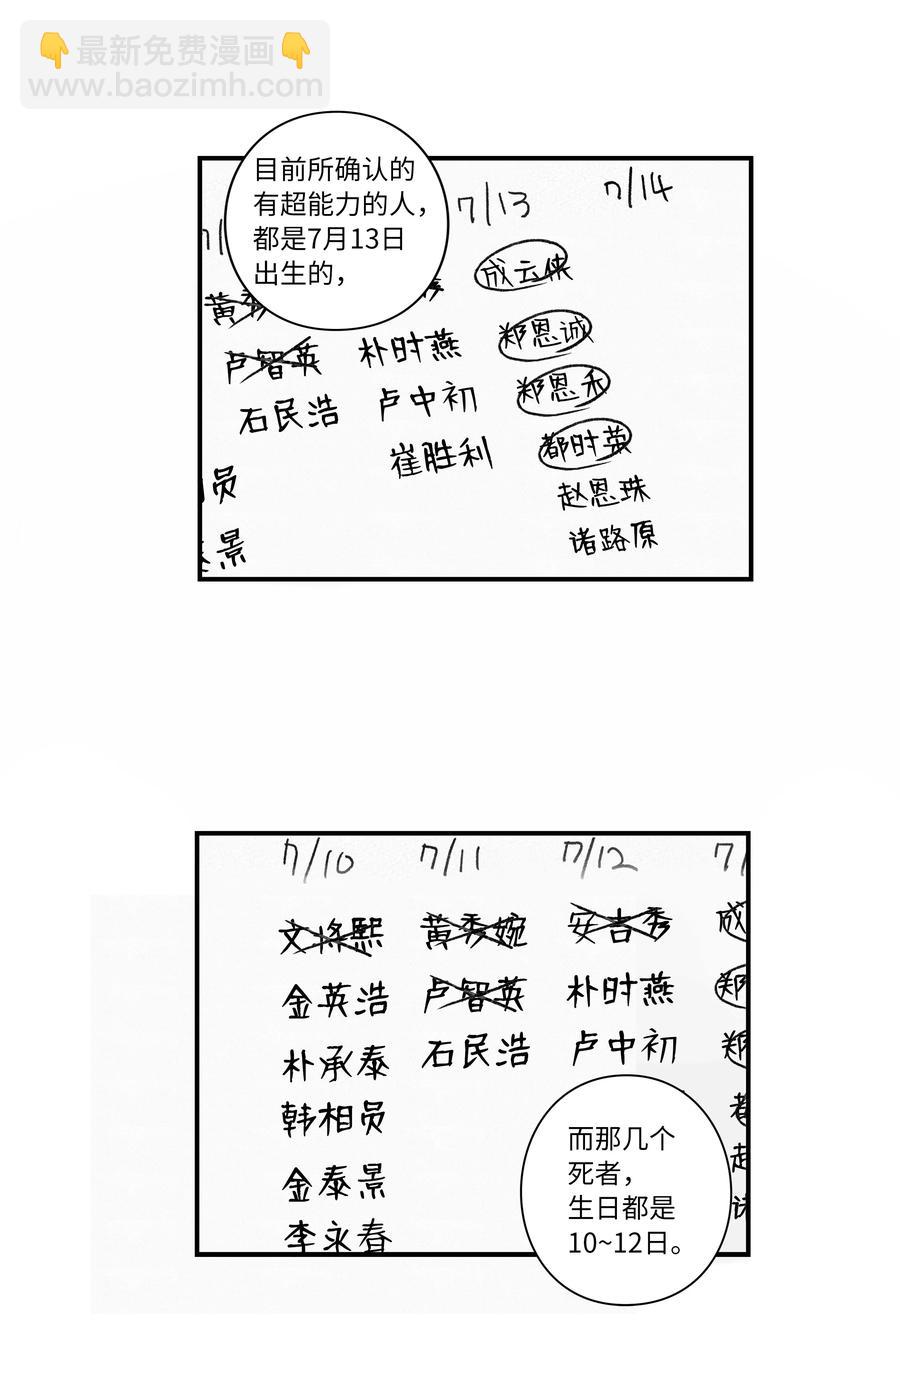 最新免费漫画
www.baozimh.com
目前所确认的
有超能力的人，
都是7月13日
出生的，
7/13
7/14
成云侠
黄秀
郑恩诚
卢智英
朴时燕
郑恩禾
石民浩
卢中初
都时英
崔胜利
赵恩珠
员
诸路原
景
7/10
7/11
7/12
7/
文将熙
黄秀婉
安吉秀
成
金英浩
卢智英
朴时燕
郑
朴承泰
石民浩
卢中初
郑
韩相员
金泰景
李永春
而那几个
死者，
生日都是
10~12日。